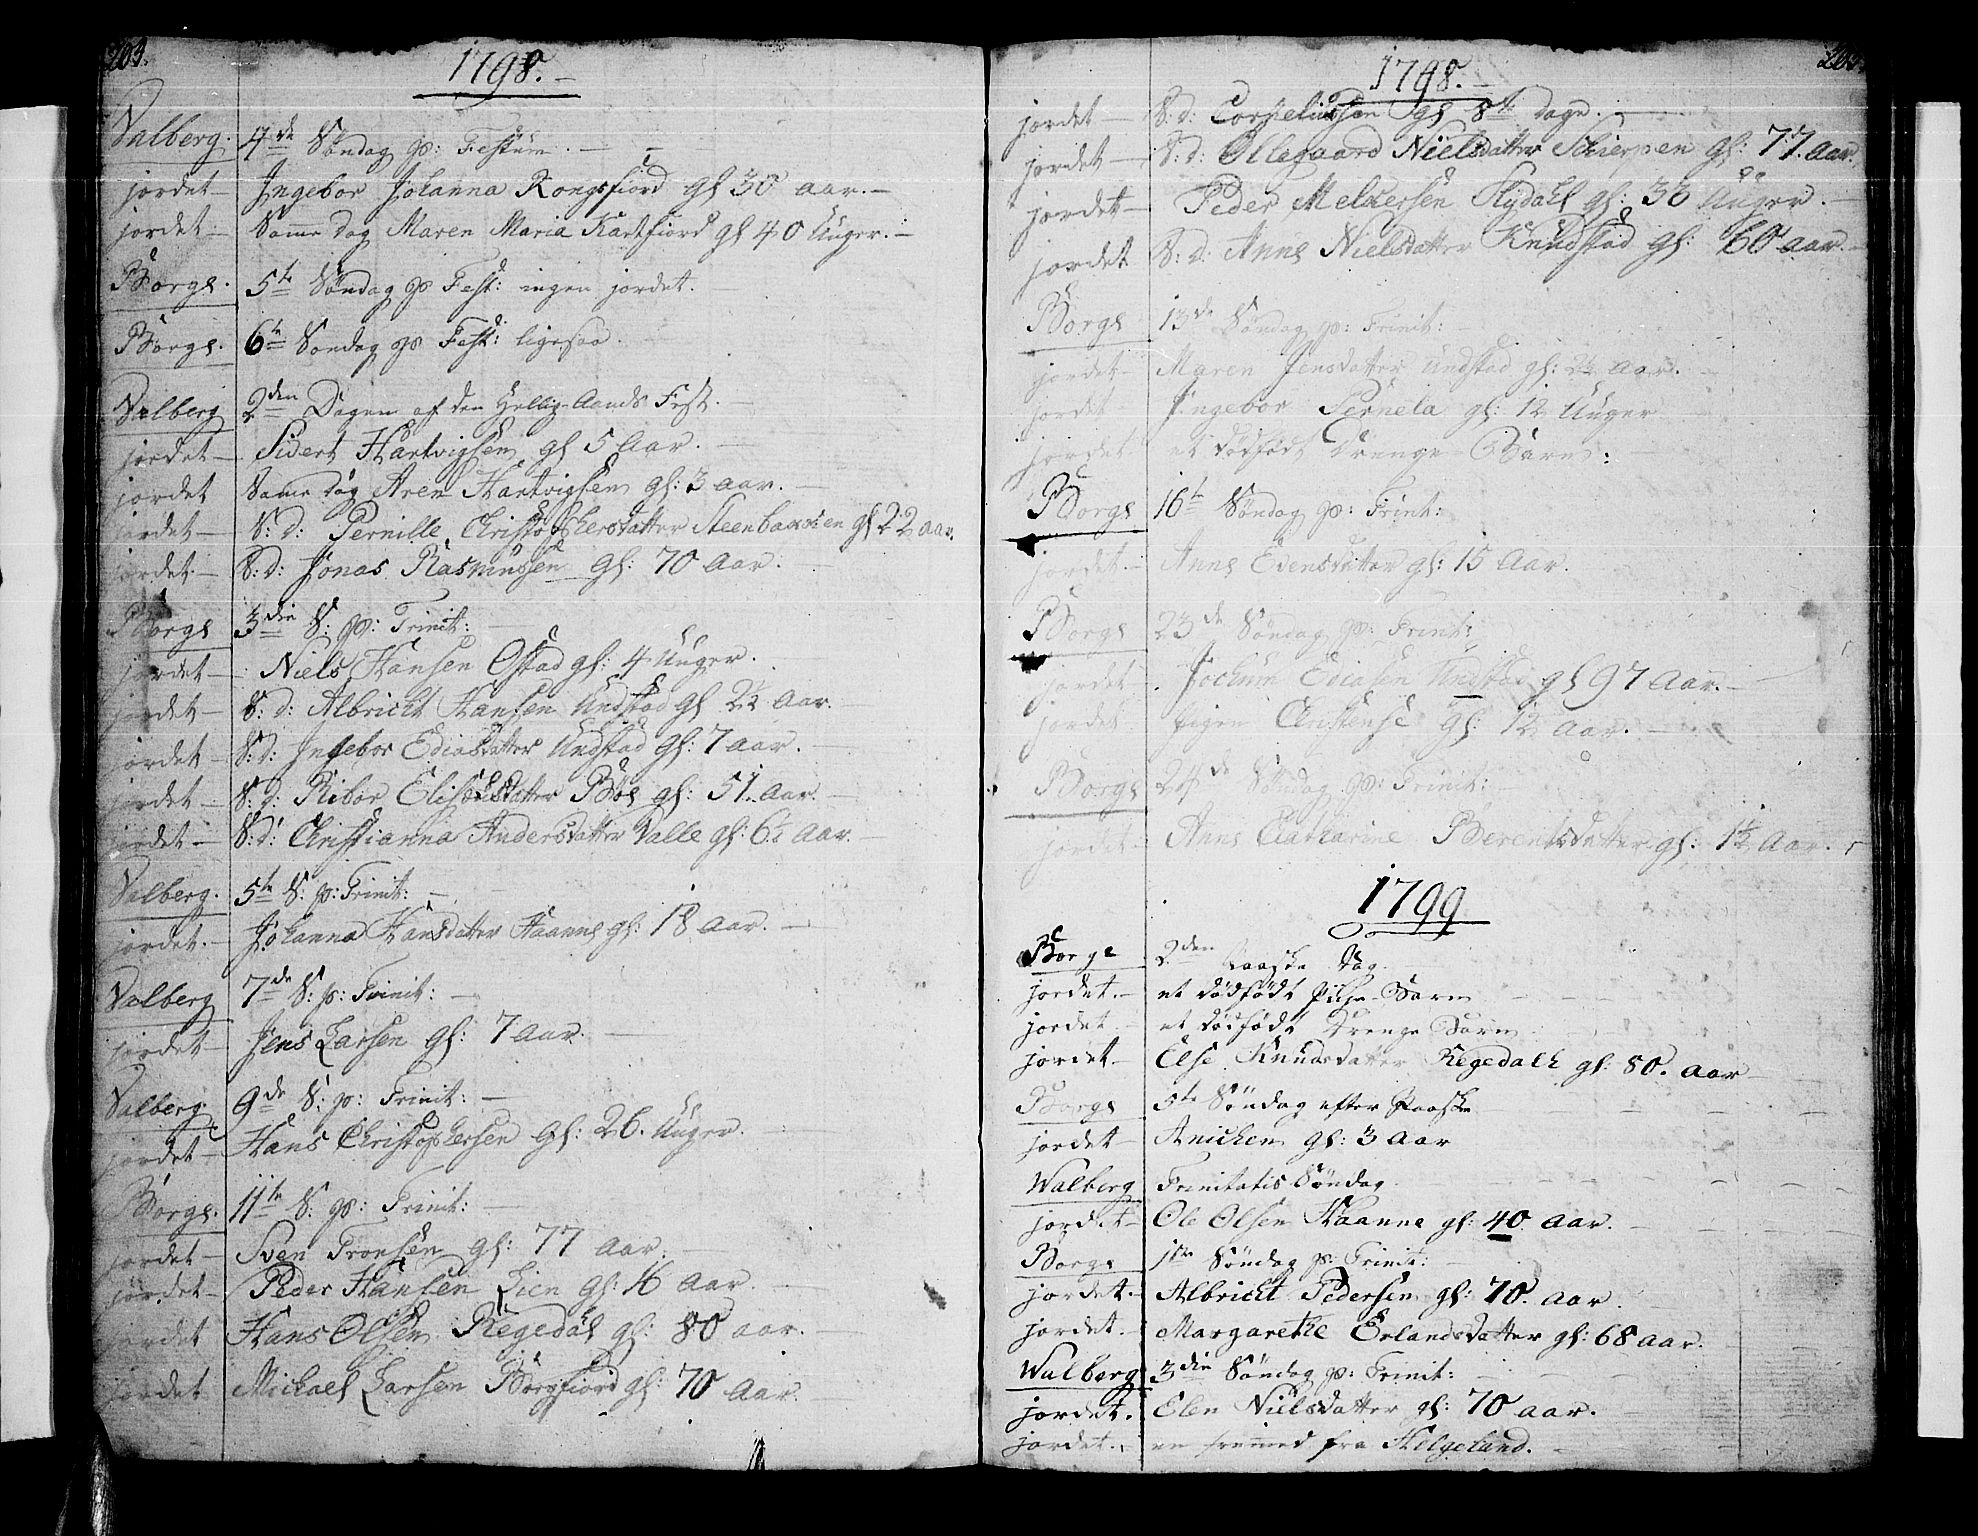 203.
1798.
Valberg. 4de Søndag p: Festum.
jordet Ingebor Johanna Kongsfiord gl 30 aar.
jordet Samme dag Maren Maria Kartfiord gl 40 Uuger.
Borge. 5te Søndag p Fest: ingen jordet.
Borge. 6te Søndag p Fest: ligesaa.
Valberg 2den Dagen af den Hellig-Aands Fest.
jordet Sivert Hartvigsen gl 5 Aar.
jordet Samme dag Aren Hartvigsen gl: 3 aar.
jordet S: d: Pernille Christophersdatter Steenbakken gl 22 aar.
jordet S: d: Jonas Rasmussen gl: 70 Aar.
Borge 3die S: p: Trinit:
jordet Niels Hansen Østad gl: 4 Uuger.
jordet S: d: Albricht Hansen Undstad gl 2½ Aar.
jordet S: d: Ingebor Ediasdatter Undstad gl: 7 aar.
jordet S: d: Ribor Elisæusdatter Bøe gl: 51. Aar.
jordet S: d: Christianna Andersdatter Valle gl: 6½ Aar.
Valberg. 5te S: p: Trinit:
jordet. Johanna Hansdatter Haanne gl: 18 aar.
Valberg 7de S: p: Trinit:
jordet Jens Larsen gl: 7 Aar.
Valberg. 9de S: p: Trinit:
jordet Hans Christophersen gl: 26. Uuger.
Borge. 11te S: p: Trinit:
jordet Sven Tronsen gl: 77 aar.
jordet Peder Hansen Lien gl: 16 aar
jordet Hans Olsen Regedal gl: 80 aar.
jordet Michael Larsen Borgfiord gl: 70 Aar.
1798.
jordet S: d: Corneliussen gl 8te dage.
jordet S: d: Ollegaard Nielsdatter Schierpen gl: 77. aar.
jordet Peder Melchersen Rydahl gl: 33 Uuger.
jordet S: d: Anne Nielsdatter Knudstad gl: 60 aar.
Borge 13de Søndag p: Trinit:
jordet Maren Jensdatter Undstad gl: 2½ Aar.
jordet Ingebor Pernela gl: 12 Uuger
jordet et dødfødt Drenge-Barn:
Borge 16te Søndag p: Trinit:
jordet. Anne Edensdatter gl: 15 Aar.
Borge 23de Søndag p: Trinit:
jordet Jochum Ediasen Undstad gl 97 Aar.
jordet pigen Christense gl: 12 Aar.
Borge 24de Søndag p: Trinit:
jordet Anne Catharine Berentsdatter gl: 1½ Aar.
1799
Borge 2den Paaske Dag.
jordet. et dødfødt Pige-Barn
jordet et dødfødt Drenge Barn
jordet Else Knudsdatter Regedahl gl: 80. aar
Borge 5te Søndag efter Paaske
jordet Anichen gl: 3 Aar
Walberg Trinitatis Søndag
jordet Ole Olsen Haanne gl: 40 aar.
Borge 1ste Søndag p: Trinit:
jordet. Albricht Pedersen gl: 70. aar.
jordet. Margarethe Erlandsdatter gl: 68 aar.
Walberg 3die Søndag p: Trinit:
jordet. Elen Nielsdatter gl: 70 aar.
jordet. en fremmed fra Helgeland.